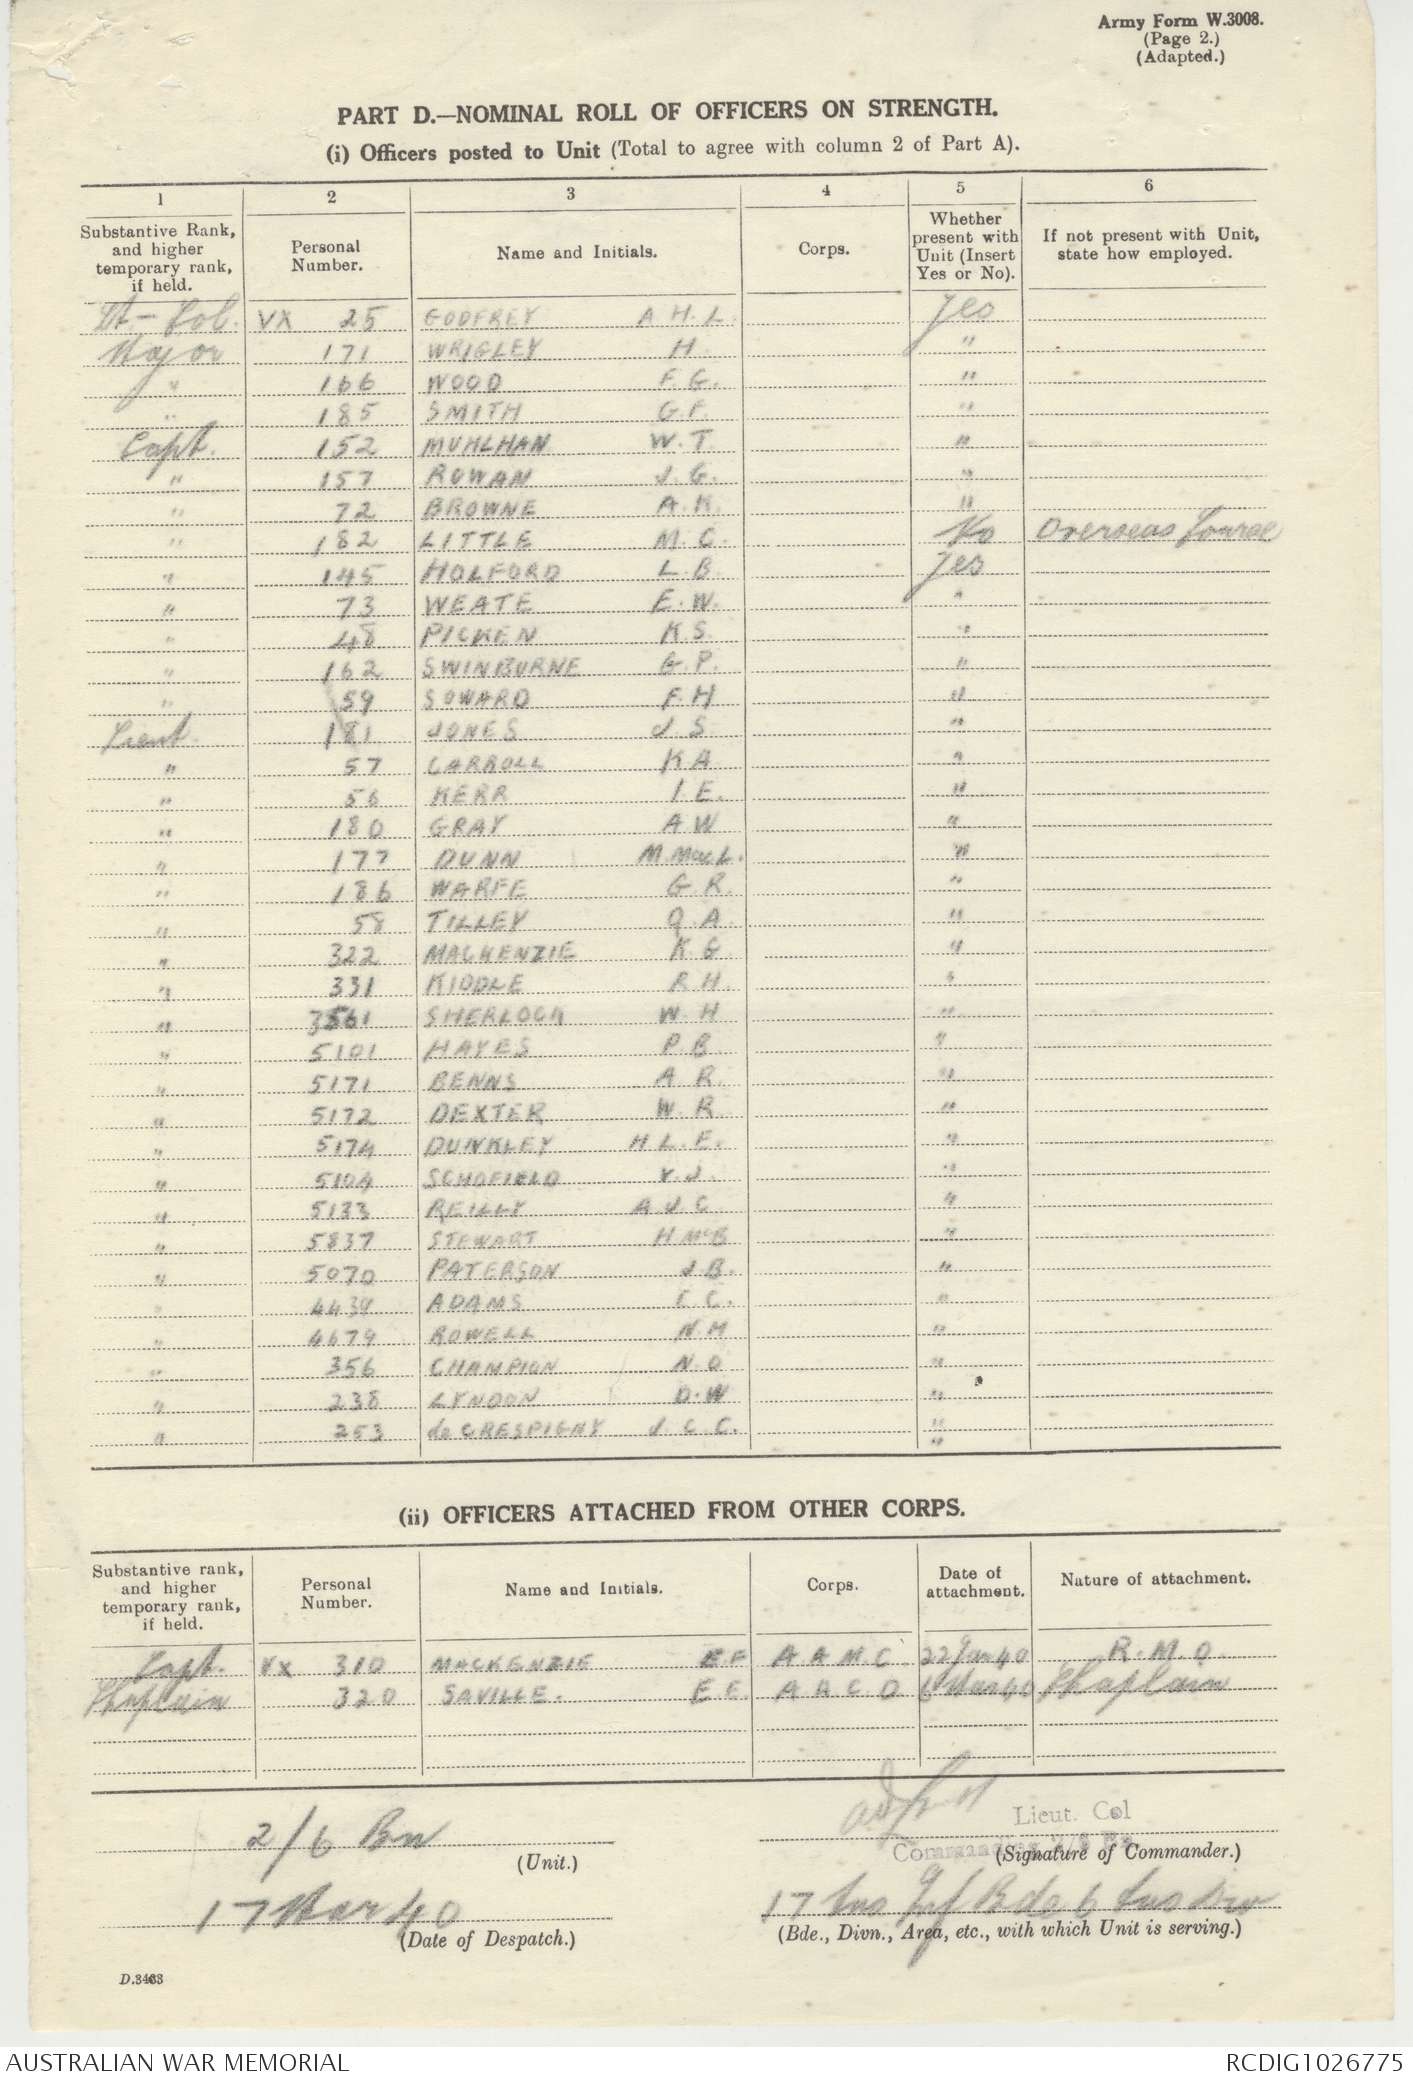 Army Form W.3008.
(Page 2.)
(Adapted.)
PART D.—NOMINAL ROLL OF OFFICERS ON STRENGTH.
(i) Officers posted to Unit (Total to agree with column 2 of Part A).
1 2 3 4 5 6
Substantive Rank, and higher temporary rank, if held. Personal Number. Name and Initials. Corps. Whether present with Unit (Insert Yes or No). If not present with Unit, state how employed.
Lt-Col. VX 25 GODFREY A.H.L. Yes
Major 171 WRIGLEY H. "
" 166 WOOD F.G. "
" 185 SMITH G.F. "
Capt. 152 MUHLHAN W.T. "
" 157 ROWAN J.G. "
" 72 BROWNE A.K. "
" 182 LITTLE M.C. No Overseas
" 145 HOLFORD L.B. Yes
" 73 WEATE E.W. "
" 48 PICKEN K.S. "
" 162 SWINBURNE G.P. "
" 59 SOWARD F.H "
Lieut. 181 JONES J.S "
" 57 CARROLL K A "
" 56 KERR I.E. "
" 180 GRAY A W "
" 177 DUNN M.MacL. "
" 186 WARFE G R. "
" 58 TILLEY Q.A. "
" 322 MACKENZIE K G. "
" 331 KIDDLE R H. "
" 3561 SHERLOCK W H "
" 5101 HAYES P B. "
" 5171 BENNS A R. "
" 5172 DEXTER W.R "
" 5174 DUNKLEY H L.F. "
" 5104 SCHOFIELD V.J. "
" 5133 REILLY A J C. "
" 5837 STEWART H McB "
" 5070 PATERSON J.B. "
" 4439 ADAMS C. "
" 4679 ROWELL N M "
" 356 CHAMPION N.O "
" 238 LYNDON D.W "
" 253 de CRESPIGNY J.C.C. "
"
(ii) OFFICERS ATTACHED FROM OTHER CORPS.
Substantive rank, and higher temporary rank, if held. Personal Number. Name and Initials. Corps. Date of attachment. Nature of attachment.
Capt. VX 310 MACKENZIE E.F A.A.M.C. 22 Jan 40 R.M.O.
Chaplain 320 SAVILLE. E E. A A C D 6 Mar 40 Chaplain
Lieut. Col
2/6 Bn
Commanding 2/6 Bn.
(Unit.) (Signature of Commander.)
17 Mar 40 17 Aus Inf Bde 6 Aus Div
(Date of Despatch.) (Bde., Divn., Area, etc., with which Unit is serving.)
D.3463
AUSTRALIAN WAR MEMORIAL RCDIG1026775